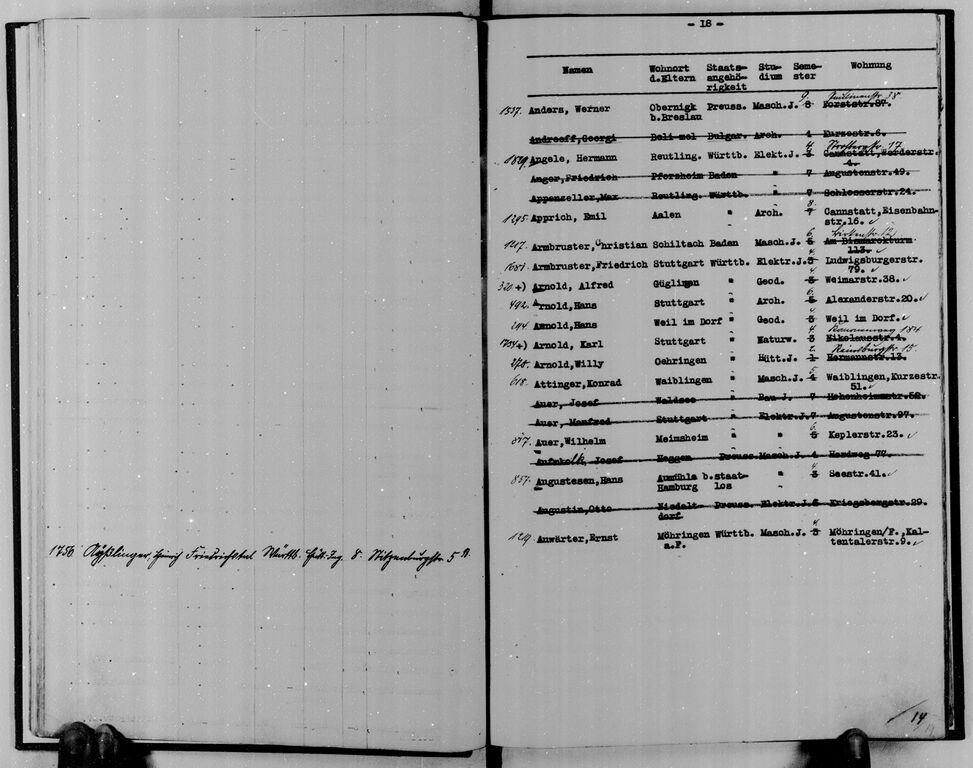 1756 Friedrichstal Württb. Hütt.Ing. 8.
- 18 -
Namen Wohnort d.Eltern Staats-angehö-rigkeit Stu-dium Seme-ster Wohnung
1537. Anders, Werner Obernigk Preuss. Masch.J. 9. 8
b.Breslau Forststr.87.
Andreeff,Georgi Beli-mel Bulgar. Arch. 4 Kurzestr.6.
Angele, Hermann Reutling. Württb. Elekt.J. 4. 3 Cannstatt,Werderstr.
4.
Anger,Friedrich Pforzheim Baden " 7 Augustenstr.49.
Appenzeller,Max Reutling. Württb. " 7 Schlosserstr.24.
1295. Apprich, Emil Aalen " Arch. 8. 7 Cannstatt,Eisenbahn-
str.16.
1247. Armbruster,Christian Schiltach Baden Masch.J. 6. 5 Am Bismarckturm
113.
1681. Armbruster,Friedrich Stuttgart Württb. Elektr.J. 4. 3 Ludwigsburgerstr.
79.
320 +) Arnold, Alfred Güglingen " Geod. 4 3 Weimarstr.38.
492. Arnold,Hans Stuttgart " Arch. 6. 5 Alexanderstr.20.
294. Arnold,Hans Weil im Dorf " Geod. 3 Weil im Dorf.
704 +) Arnold, Karl Stuttgart " Naturw. 4. 3 Nikolausstr.4.
278. Arnold,Willy Oehringen " Hütt.J. 2. 1 Reinsburgstr 15.
Hermannstr.13.
618. Attinger,Konrad Waiblingen " Masch.J. 5. 4 Waiblingen,Kurzestr.
51.
Auer, Josef Waldsee " Bau-J. 7 Hohenheimstr.52.
Auer, Manfred Stuttgart " Elektr.J. 7 Augustenstr.97.
317. Auer,Wilhelm Meimsheim " " 6. 5 Keplerstr.23.
Aufmkolk, Josef Heggen Preuss. Masch.J. 4 Herdweg 77.
857. Augustesen,Hans Aumühle b. staat- " 4 3 Seestr.41.
Hamburg los
Augustin,Otto Niedalt- Preuss. Elektr.J. 6 Kriegsbergstr.29.
dorf
129. Anwärter,Ernst Möhringen Württb. Masch.J. 4 3 Möhringen/F.,Kal-
a.F. tentalerstr.9.
14